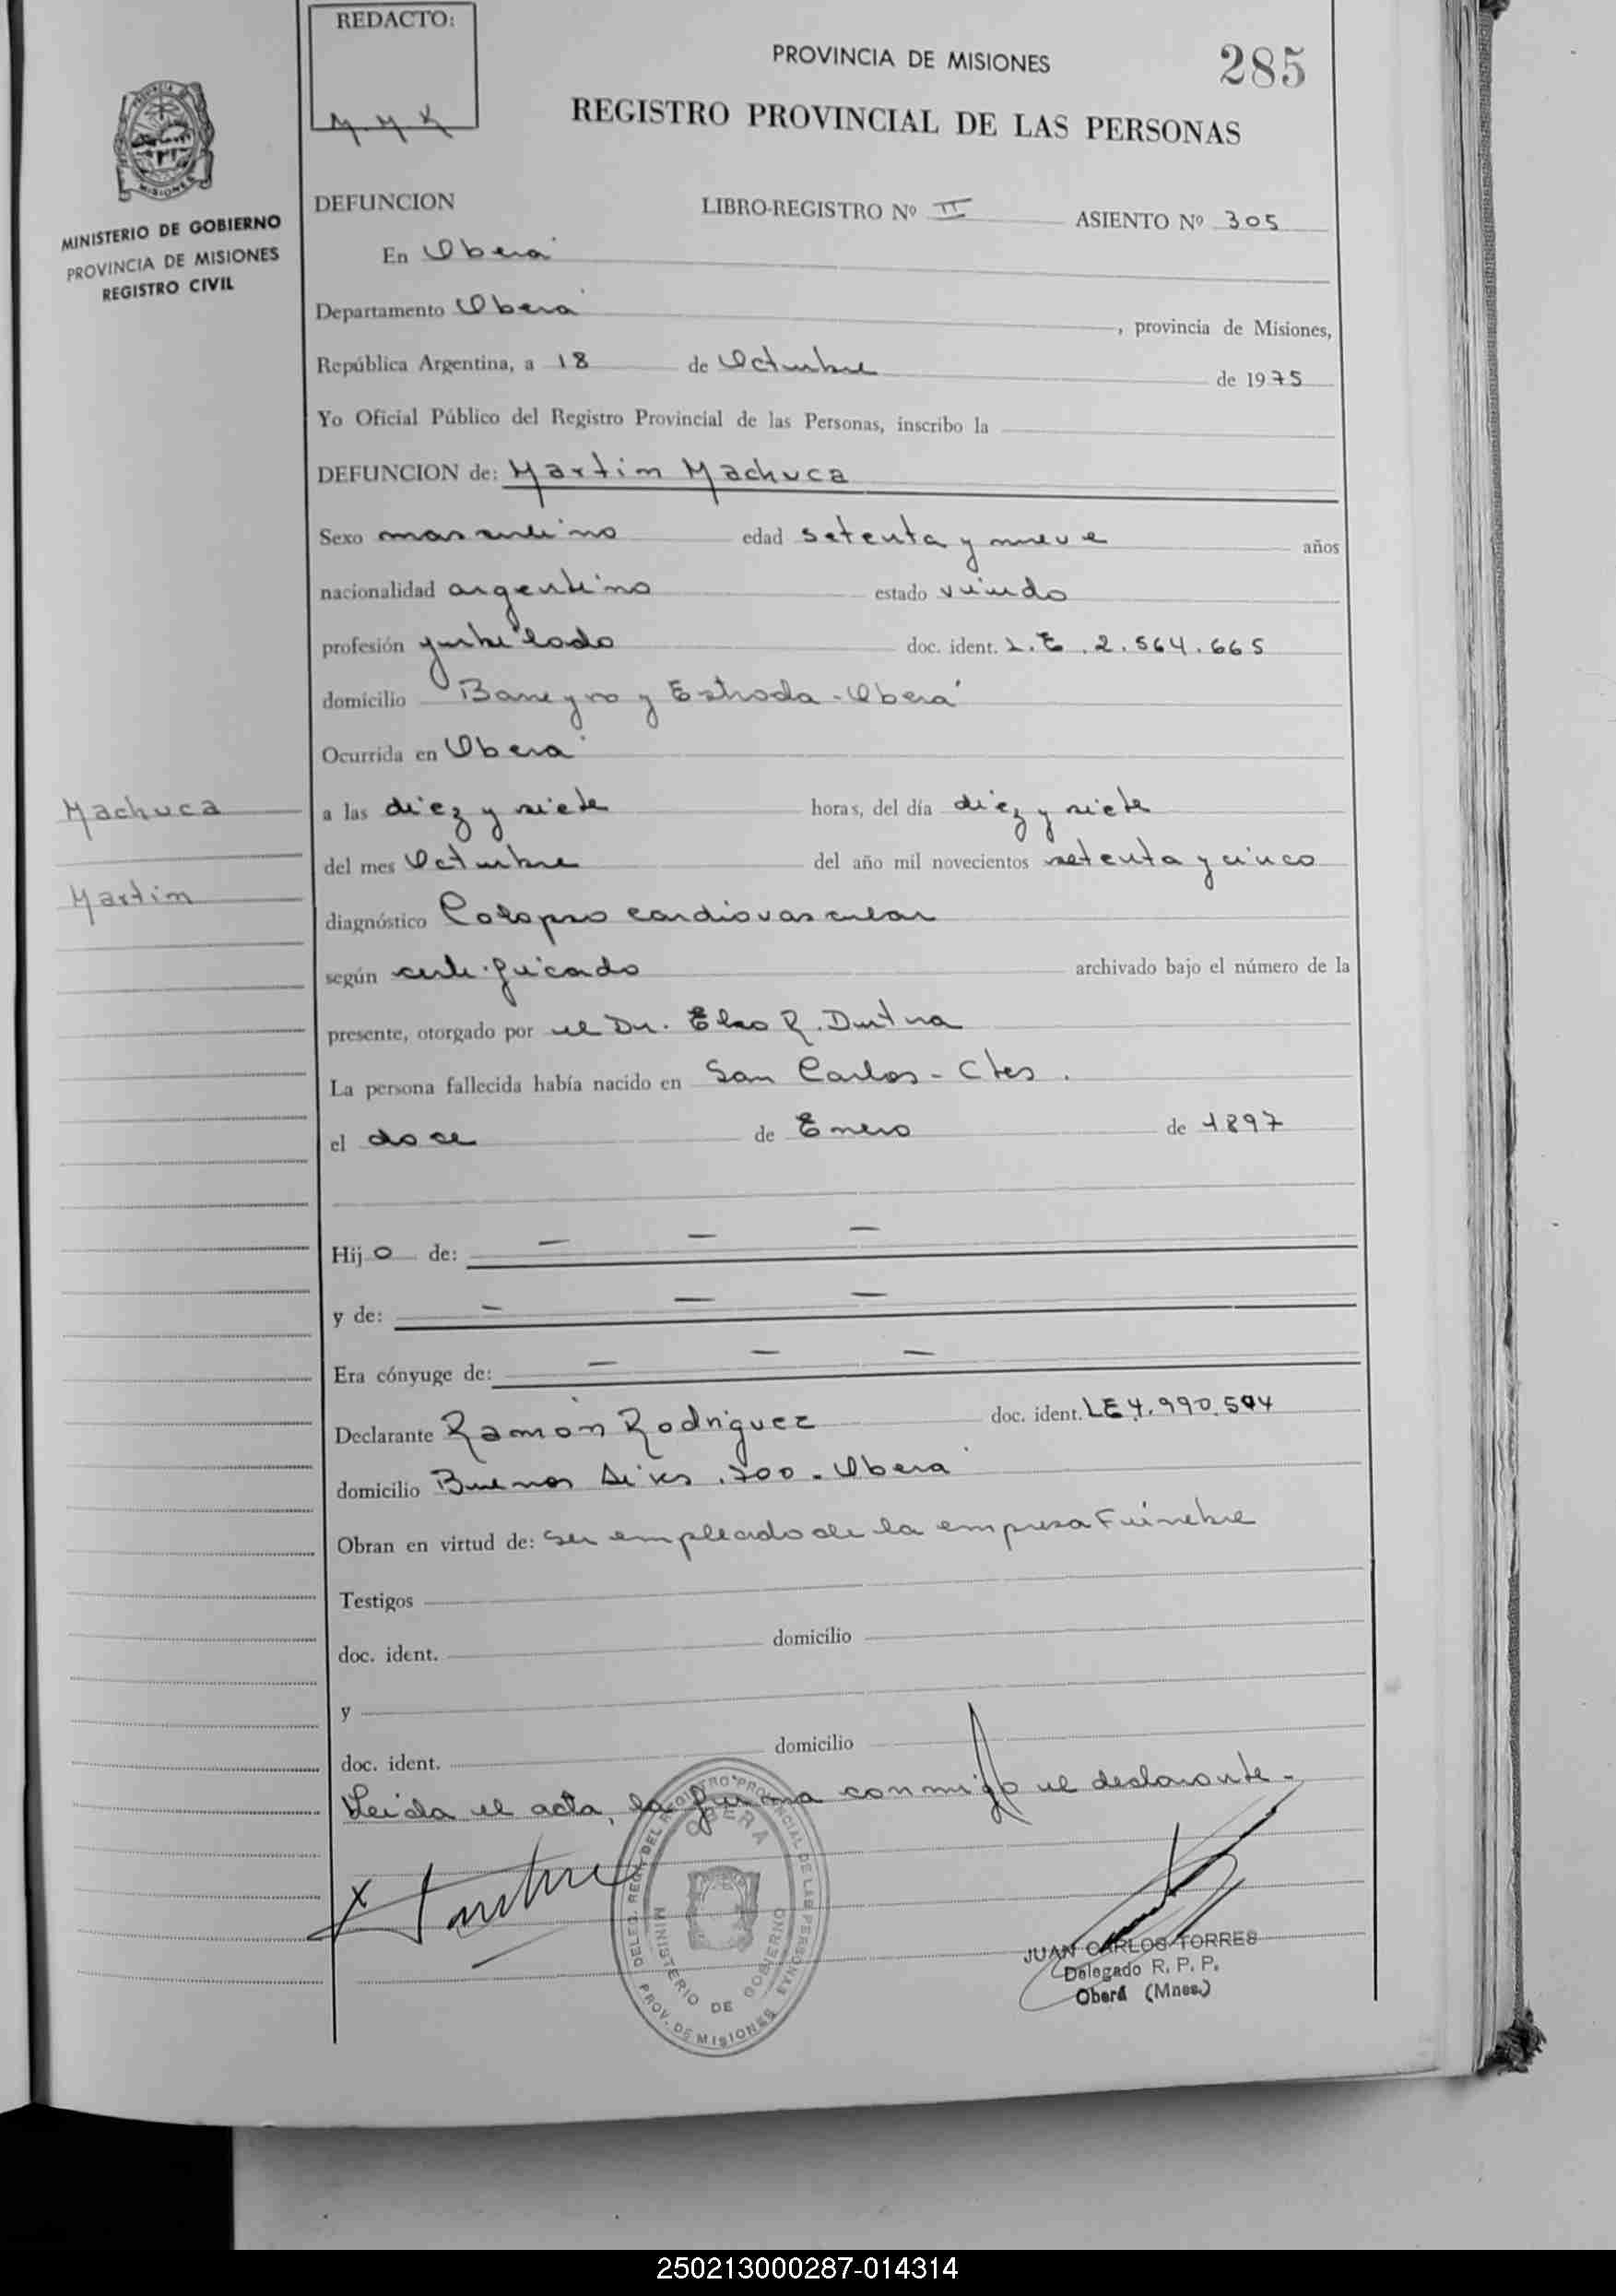 REDACTO:
PROVINCIA DE MISIONES
285
REGISTRO PROVINCIAL DE LAS PERSONAS
MISIONES
MINISTERIO DE GOBIERNO
PROVINCIA DE MISIONES
REGISTRO CIVIL
DEFUNCION LIBRO-REGISTRO Nº II ASIENTO Nº 305
En Oberá
Departamento Oberá, provincia de Misiones,
República Argentina, a 18 de Octubre de 1975
Yo Oficial Público del Registro Provincial de las Personas, inscribo la
DEFUNCION de: Martin Machuca
Sexo masculino edad setenta y nueve años
nacionalidad argentino estado viudo
profesión jubilado doc. ident. L.E. 2.564.665
domicilio y Estrada - Oberá
Ocurrida en Oberá
Machuca
a las diez y siete horas, del día diez y siete
del mes Octubre del año mil novecientos setenta y cinco
Martin
diagnóstico Colapso cardiovascular
según certificado archivado bajo el número de la
presente, otorgado por el Dr. Elso R. Dutra
La persona fallecida había nacido en San Carlos - Ctes.
el doce de Enero de 1897
Hijo de: — — —
y de: — — —
Era cónyuge de: — — —
Declarante Ramón Rodriguez doc. ident. LE 4.990.504
domicilio Buenos Aires .700 - Oberá
Obran en virtud de: ser empleado de la empresa Fúnebre
Testigos
doc. ident. domicilio
y
doc. ident. domicilio
Leida el acta, la firma conmigo el declarante.-
DELEG. REG. DEL REGISTRO PROVINCIAL DE LAS PERSONAS
OBERA
MINISTERIO DE GOBIERNO
PROV. DE MISIONES
JUAN CARLOS TORRES
Delegado R. P. P.
Oberá (Mnes.)
250213000287-014314